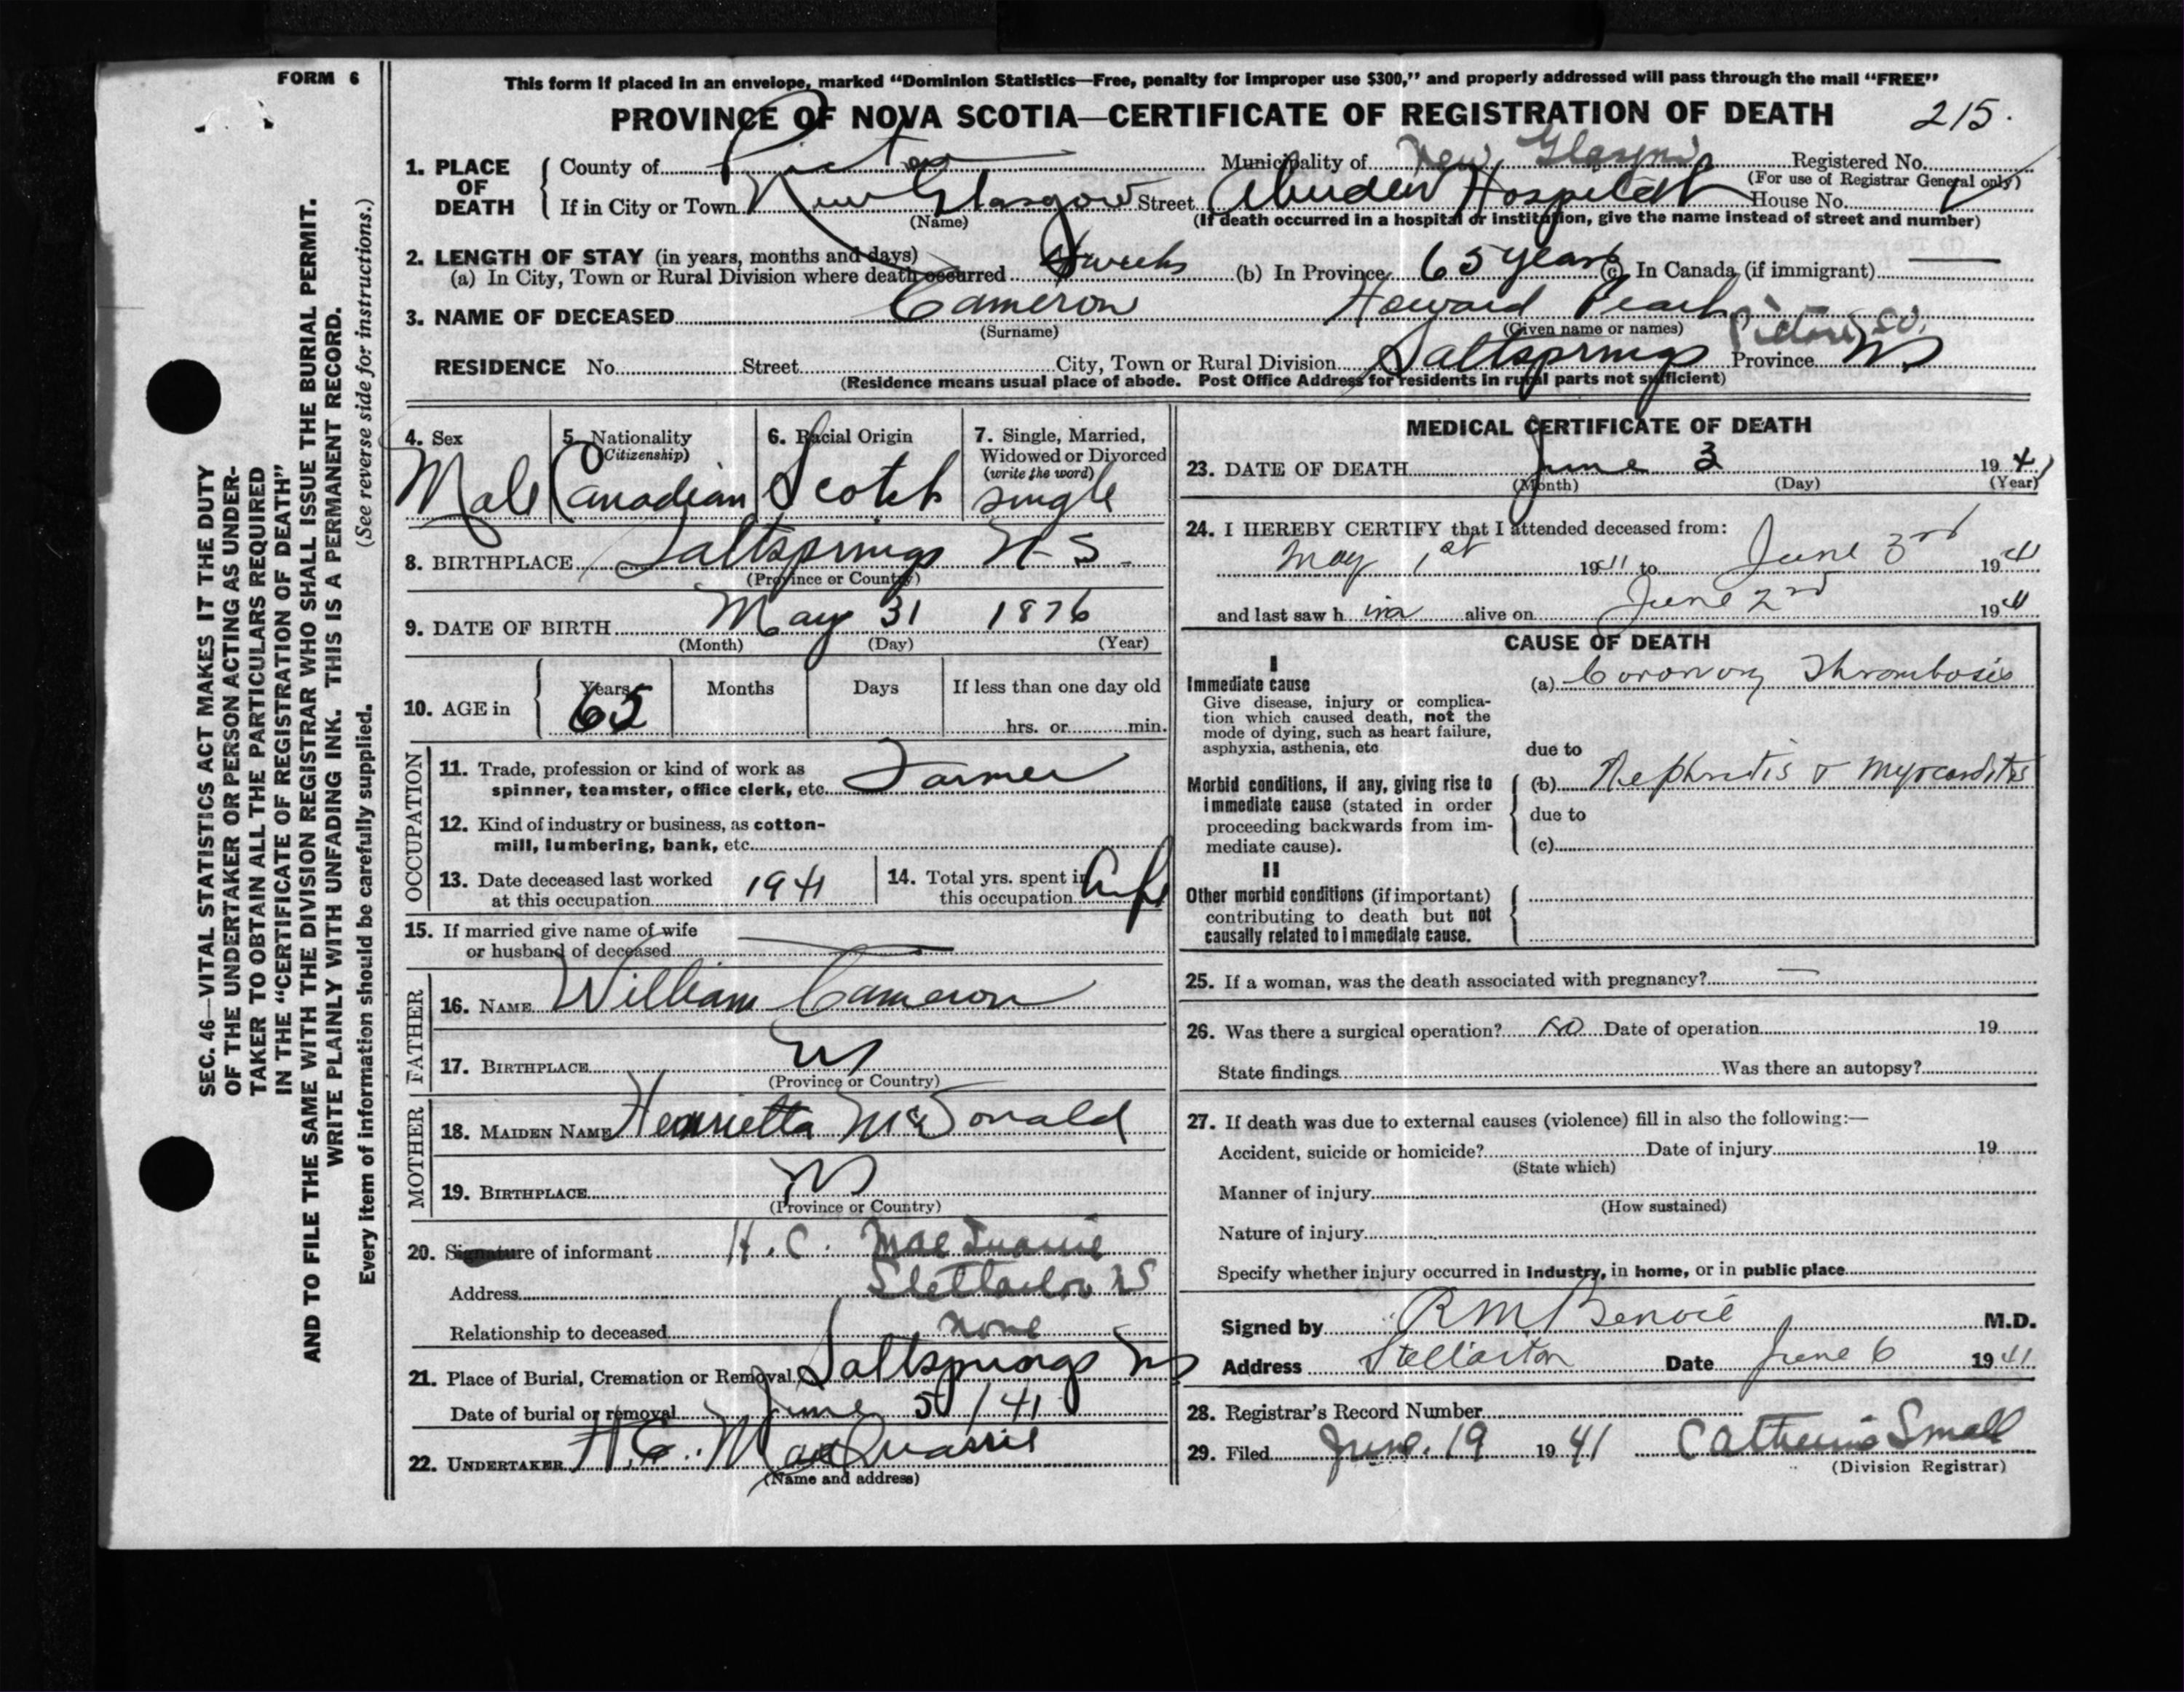 FORM 6
This form if placed in an envelope, marked “Dominion Statistics—Free, penalty for improper use $300,” and properly addressed will pass through the mail “FREE”
PROVINCE OF NOVA SCOTIA—CERTIFICATE OF REGISTRATION OF DEATH 215.
1. PLACE OF DEATH
County of Pictou Municipality of New Glasgow Registered No.
(For use of Registrar General only)
If in City or Town New Glasgow Street Aberdeen Hospital House No.
(Name) (If death occurred in a hospital or institution, give the name instead of street and number)
2. LENGTH OF STAY (in years, months and days)
(a) In City, Town or Rural Division where death occurred 4 weeks (b) In Province 65 years (c) In Canada (if immigrant) —
3. NAME OF DECEASED Cameron Howard
(Surname) (Given name or names)
Pictou Co.
RESIDENCE No. Street City, Town or Rural Division Saltsprings Province NS
(Residence means usual place of abode. Post Office Address for residents in rural parts not sufficient)
4. Sex
Male
5. Nationality
(Citizenship)
Canadian
6. Racial Origin
Scotch
7. Single, Married,
Widowed or Divorced
(write the word)
single
8. BIRTHPLACE Saltsprings N-S-
(Province or Country)
9. DATE OF BIRTH May 31 1876
(Month) (Day) (Year)
10. AGE in
Years Months Days If less than one day old
65
hrs. or min.
OCCUPATION
11. Trade, profession or kind of work as
spinner, teamster, office clerk, etc. Farmer
12. Kind of industry or business, as cotton-
mill, lumbering, bank, etc.
13. Date deceased last worked
at this occupation 1941
14. Total yrs. spent in
this occupation Life
15. If married give name of wife
or husband of deceased —
FATHER
16. NAME William Cameron
17. BIRTHPLACE NS
(Province or Country)
MOTHER
18. MAIDEN NAME Henrietta McDonald
19. BIRTHPLACE NS
(Province or Country)
20. Signature of informant H. C. MacQuarrie
Address Stellarton NS
Relationship to deceased none
21. Place of Burial, Cremation or Removal Saltsprings NS
Date of burial or removal June 5/41
22. UNDERTAKER H.C. MacQuarrie
(Name and address)
MEDICAL CERTIFICATE OF DEATH
23. DATE OF DEATH June 3 1941
(Month) (Day) (Year)
24. I HEREBY CERTIFY that I attended deceased from:
May 1st 1941 to June 3rd 1941
and last saw h im alive on June 2nd 1941
CAUSE OF DEATH
I
Immediate cause
Give disease, injury or complica-
tion which caused death, not the
mode of dying, such as heart failure,
asphyxia, asthenia, etc
(a) Coronary Thrombosis
due to
Morbid conditions, if any, giving rise to
immediate cause (stated in order
proceeding backwards from im-
mediate cause).
(b) Nephritis & Myocarditis
due to
(c)
II
Other morbid conditions (if important)
contributing to death but not
causally related to immediate cause.
25. If a woman, was the death associated with pregnancy? —
26. Was there a surgical operation? No Date of operation 19
State findings Was there an autopsy?
27. If death was due to external causes (violence) fill in also the following:—
Accident, suicide or homicide? Date of injury 19
(State which)
Manner of injury
(How sustained)
Nature of injury
Specify whether injury occurred in industry, in home, or in public place
Signed by R M Benvie M.D.
Address Stellarton Date June 6 1941
28. Registrar's Record Number
29. Filed June. 19 1941 Catherine Small
(Division Registrar)
SEC. 46—VITAL STATISTICS ACT MAKES IT THE DUTY
OF THE UNDERTAKER OR PERSON ACTING AS UNDER-
TAKER TO OBTAIN ALL THE PARTICULARS REQUIRED
IN THE “CERTIFICATE OF REGISTRATION OF DEATH”
AND TO FILE THE SAME WITH THE DIVISION REGISTRAR WHO SHALL ISSUE THE BURIAL PERMIT.
WRITE PLAINLY WITH UNFADING INK. THIS IS A PERMANENT RECORD.
Every item of information should be carefully supplied. (See reverse side for instructions.)